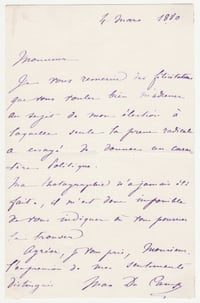 4 mars 1880
Monsieur
Je vous remercie des félicitations
que vous voulez bien m'adresser
au sujet de mon élection à
laquelle seule la presse radicale
a essayé de donner un carac-
tère politique.
Ma photographie n'a jamais été
faite, il m'est donc impossible
de vous indiquer où vous pourrez
la trouver
Agréez, je vous prie, Monsieur,
l'expression de mes sentiments
distingués Maxe Du Camp